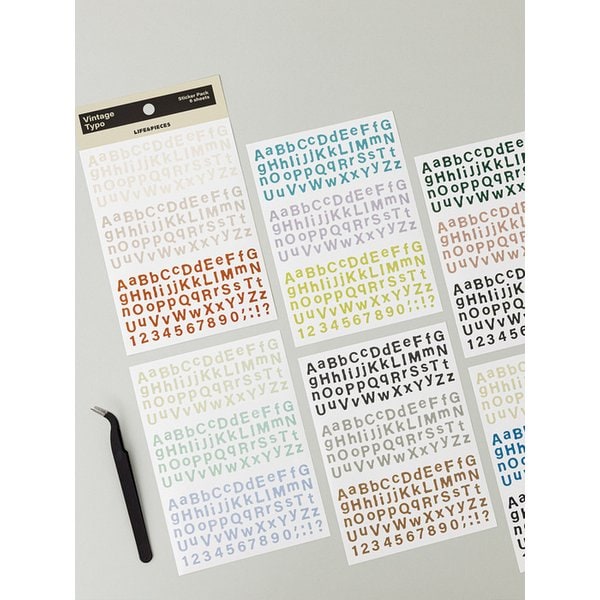 Vintage
Typo
Sticker Pack
6 sheets
LIFE&PIECES
AaBbCcDdEeFfG
gHhIiJjKkLlMmN
nOoPpQqRrSsTt
UuVvWwXxYyZz
AaBbCcDdEeFfG
gHhIiJjKkLlMmN
nOoPpQqRrSsTt
UuVvWwXxYyZz
AaBbCcDdEeFfG
gHhIiJjKkLlMmN
nOoPpQqRrSsTt
UuVvWwXxYyZz
1234567890;:!?
AaBbCcDdEeFfG
gHhIiJjKkLlMmN
nOoPpQqRrSsTt
UuVvWwXxYyZz
AaBbCcDdEeFfG
gHhIiJjKkLlMmN
nOoPpQqRrSsTt
UuVvWwXxYyZz
AaBbCcDdEeFfG
gHhIiJjKkLlMmN
nOoPpQqRrSsTt
UuVvWwXxYyZz
1234567890;:!?
AaBbCcDdEeF
gHhIiJjKkLlM
nOoPpQqRrSs
UuVvWwXxYy
AaBbCcDdEe
gHhIiJjKkLl
nOoPpQqRrS
UuVvWwXx
AaBbCcDdE
gHhIiJjKkL
nOoPpQqRr
UuVvWwX
AaBbCcDdEeFfG
gHhIiJjKkLlMmN
nOoPpQqRrSsTt
UuVvWwXxYyZz
AaBbCcDdEeFfG
gHhIiJjKkLlMmN
nOoPpQqRrSsTt
UuVvWwXxYyZz
AaBbCcDdEeFfG
gHhIiJjKkLlMmN
nOoPpQqRrSsTt
UuVvWwXxYyZz
1234567890;:!?
AaBbCcDdEeFfG
gHhIiJjKkLlMmN
nOoPpQqRrSsTt
UuVvWwXxYyZz
AaBbCcDdEeFfG
gHhIiJjKkLlMmN
nOoPpQqRrSsTt
UuVvWwXxYyZz
AaBbCcDdEeFfG
gHhIiJjKkLlMmN
nOoPpQqRrSsTt
UuVvWwXxYyZz
1234567890;:!?
AaBbCcDd
gHhIiJjKk
nOoPpQq
UuVvWw
AaBbCcD
gHhIiJj
nOoPpQ
UuVvW
AaBbC
gHhIiJ
nOoPp
UuVv